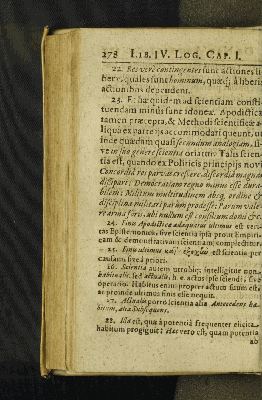 278 LIB. IV. LOG. CAP. I.
22. Res verò contingentes sunt actiones li-
beræ, quales sunt hominum, quæq; à liberis
actionibus dependent.
23. Et hæ quidem ad scientiam consti-
tuendam minus sunt idoneæ. Apodictica
tamen præcepta, & Methodi scientificæ a-
liqua ex parte ijs accommodari queunt, ut
inde quædam quasi secundum analogiam, si-
ve in suo genere scientia oriatur. Talis scien-
tia est, quando ex Politicis principijs novi
Concordiâ res parvas crescere, discordiâ magnas
dissipare: Democratiam regno minus esse dura-
bilem: Militum multitudinem absq; ordine &
disciplina militari parum prodesse: Parum vale-
re arma foris, ubi nullum est consilium domi &c.
24. Finis Apodicticæ adæquatus ultimus est veri-
tas Epistemonica, sive scientia ipsa prout & in pri-
cam & demonstrativam scientiam complectitur.
25. Finis ultimus est scientia per
causam sive à priori.
26. Scientia autem utrabiq; intelligitur non
habitualis, sed actualis, h. e. actus ipse sciendi, sive
operatio. Habitus enim propter actum suum est,
ac proinde ultimus finis esse nequit.
27. Actualis porrò scientia alia Antecedens ha-
bitum, alia Subsequens.
28. Illa est, quæ à potentiâ frequenter elicita
habitum progignit: Hæc verò est, quam potentia
ab